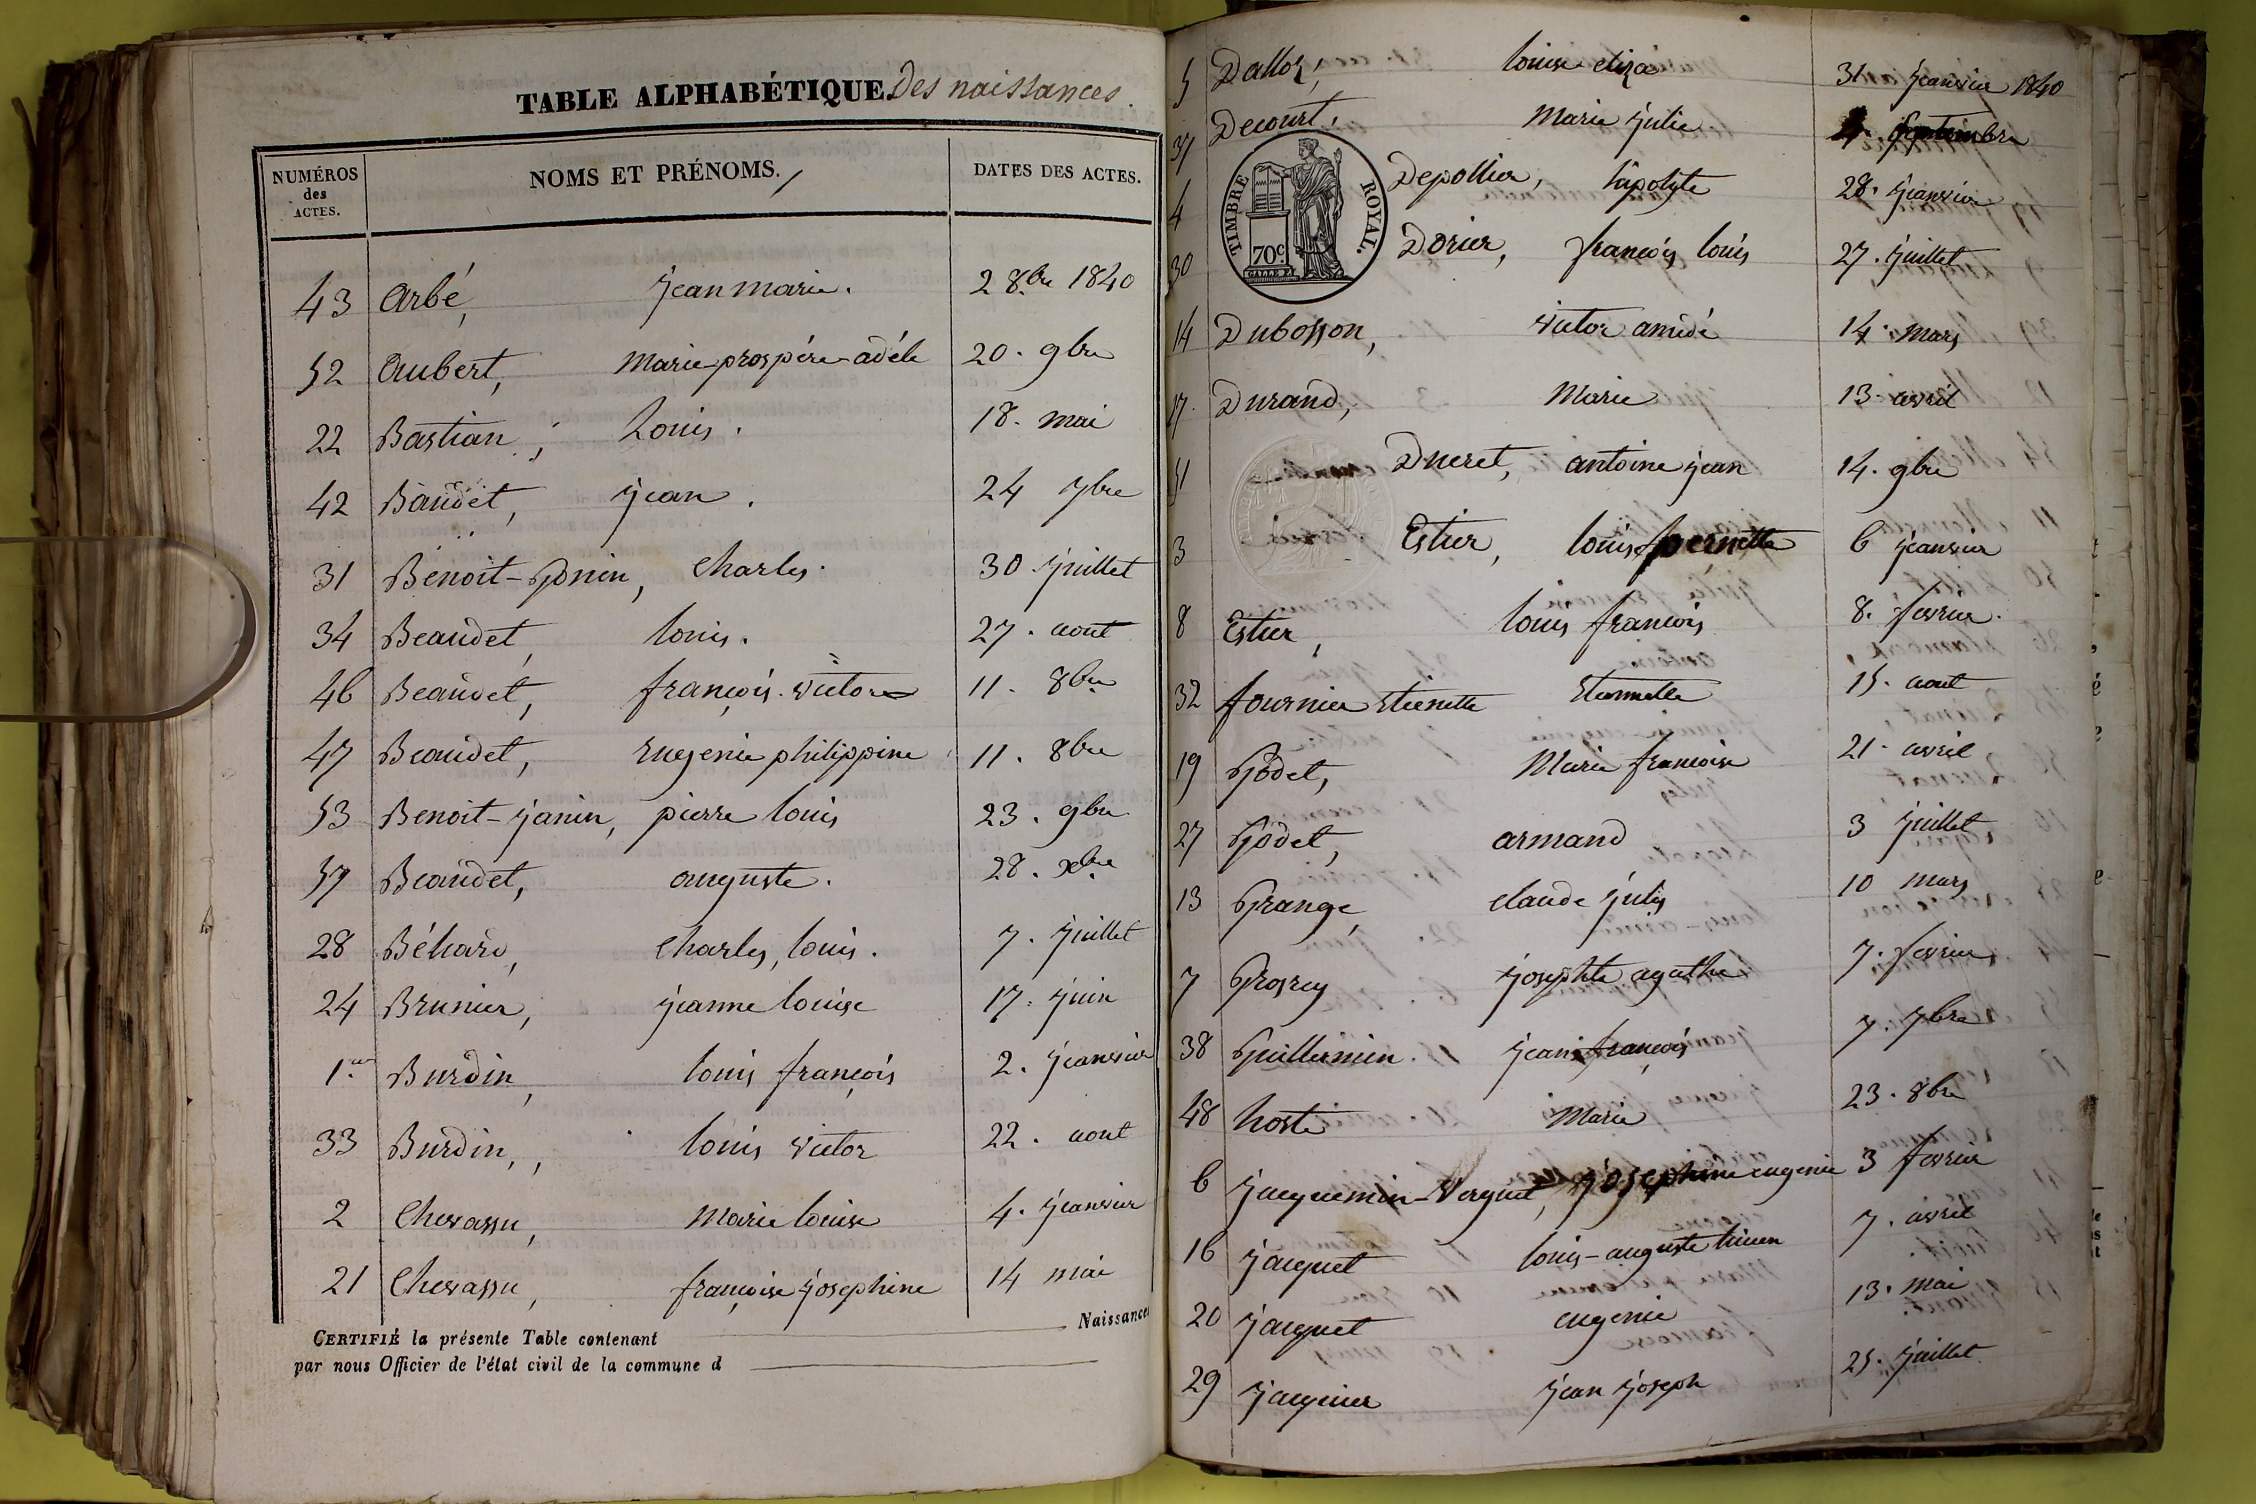 TABLE ALPHABÉTIQUE Des naissances.
NUMÉROS des ACTES. NOMS ET PRÉNOMS. DATES DES ACTES.
43 Arbé, jean marie. 2 8bre 1840
52 Aubert, Marie prospére adéle 20. 9bre
22 Bastian, Louis. 18. mai
42 Baudet, jean. 24 7bre
31 Benoit-Gonin, Charles. 30. juillet
34 Beaudet, louis. 27. aout
46 Beaudet, françois victor 11. 8bre
47 Beaudet, Eugenie philippine 11. 8bre
53 Benoit-janin, pierre louis 23. 9bre
57 Beaudet, auguste. 28. Xbre
28 Béhard, Charles, louis. 7. juillet
24 Brunier, jeanne louise 17. juin
1er Burdin, louis françois 2. janvier
33 Burdin, louis victor 22. aout
2 Chevassu, Marie louise 4. janvier
21 Chevassu, françoise josephine 14 mai
Naissances
CERTIFIÉ la présente Table contenant
par nous Officier de l'état civil de la commune d
5 Dalloz, louise eliza 31 janvier 1840
37 Decourt, Marie julie 4. Septembre
4 Depollier, hipolyte 28. janvier
TIMBRE ROYAL.
70c
30 Dorier, françois louis 27. juillet
14 Dubosson, victor amédé 14. mars
17. Durand, Marie 13. avril
51 Ducret, antoine jean 14. 9bre
3 Estier, louise pernette 6 janvier
8 Estier, louis francois 8. fevrier.
32 fournier Etienette Etiennette 15. aout
19 Godet, Marie francoise 21. avril
27 Godet, armand 3 juillet
13 Grange, claude jules 10 mars
7 Grosrey josephte agathe 7. fevrier
38 Guillermin jean françois 7. 7bre
48 hoste Marie 23. 8bre
6 jacquemin-Verguet, josephine eugenie 3 fevrier
16 jacquet louis-auguste 7. avril
20 jacquet eugenie 13. mai
29 jacquier jean joseph 25. juillet